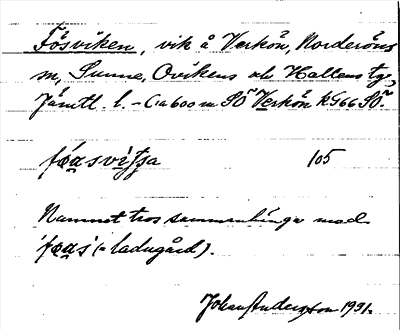 Fösviken, vik å Verkön, Norderöns
sn, Sunne, Ovikens o. Hallens tg,
Jämtl. l. - Ca 600 m SO Verkön kg66 SO.
105
Namnet tros sammanhänga med
(= ladugård).
Johan Anderzson 1931.